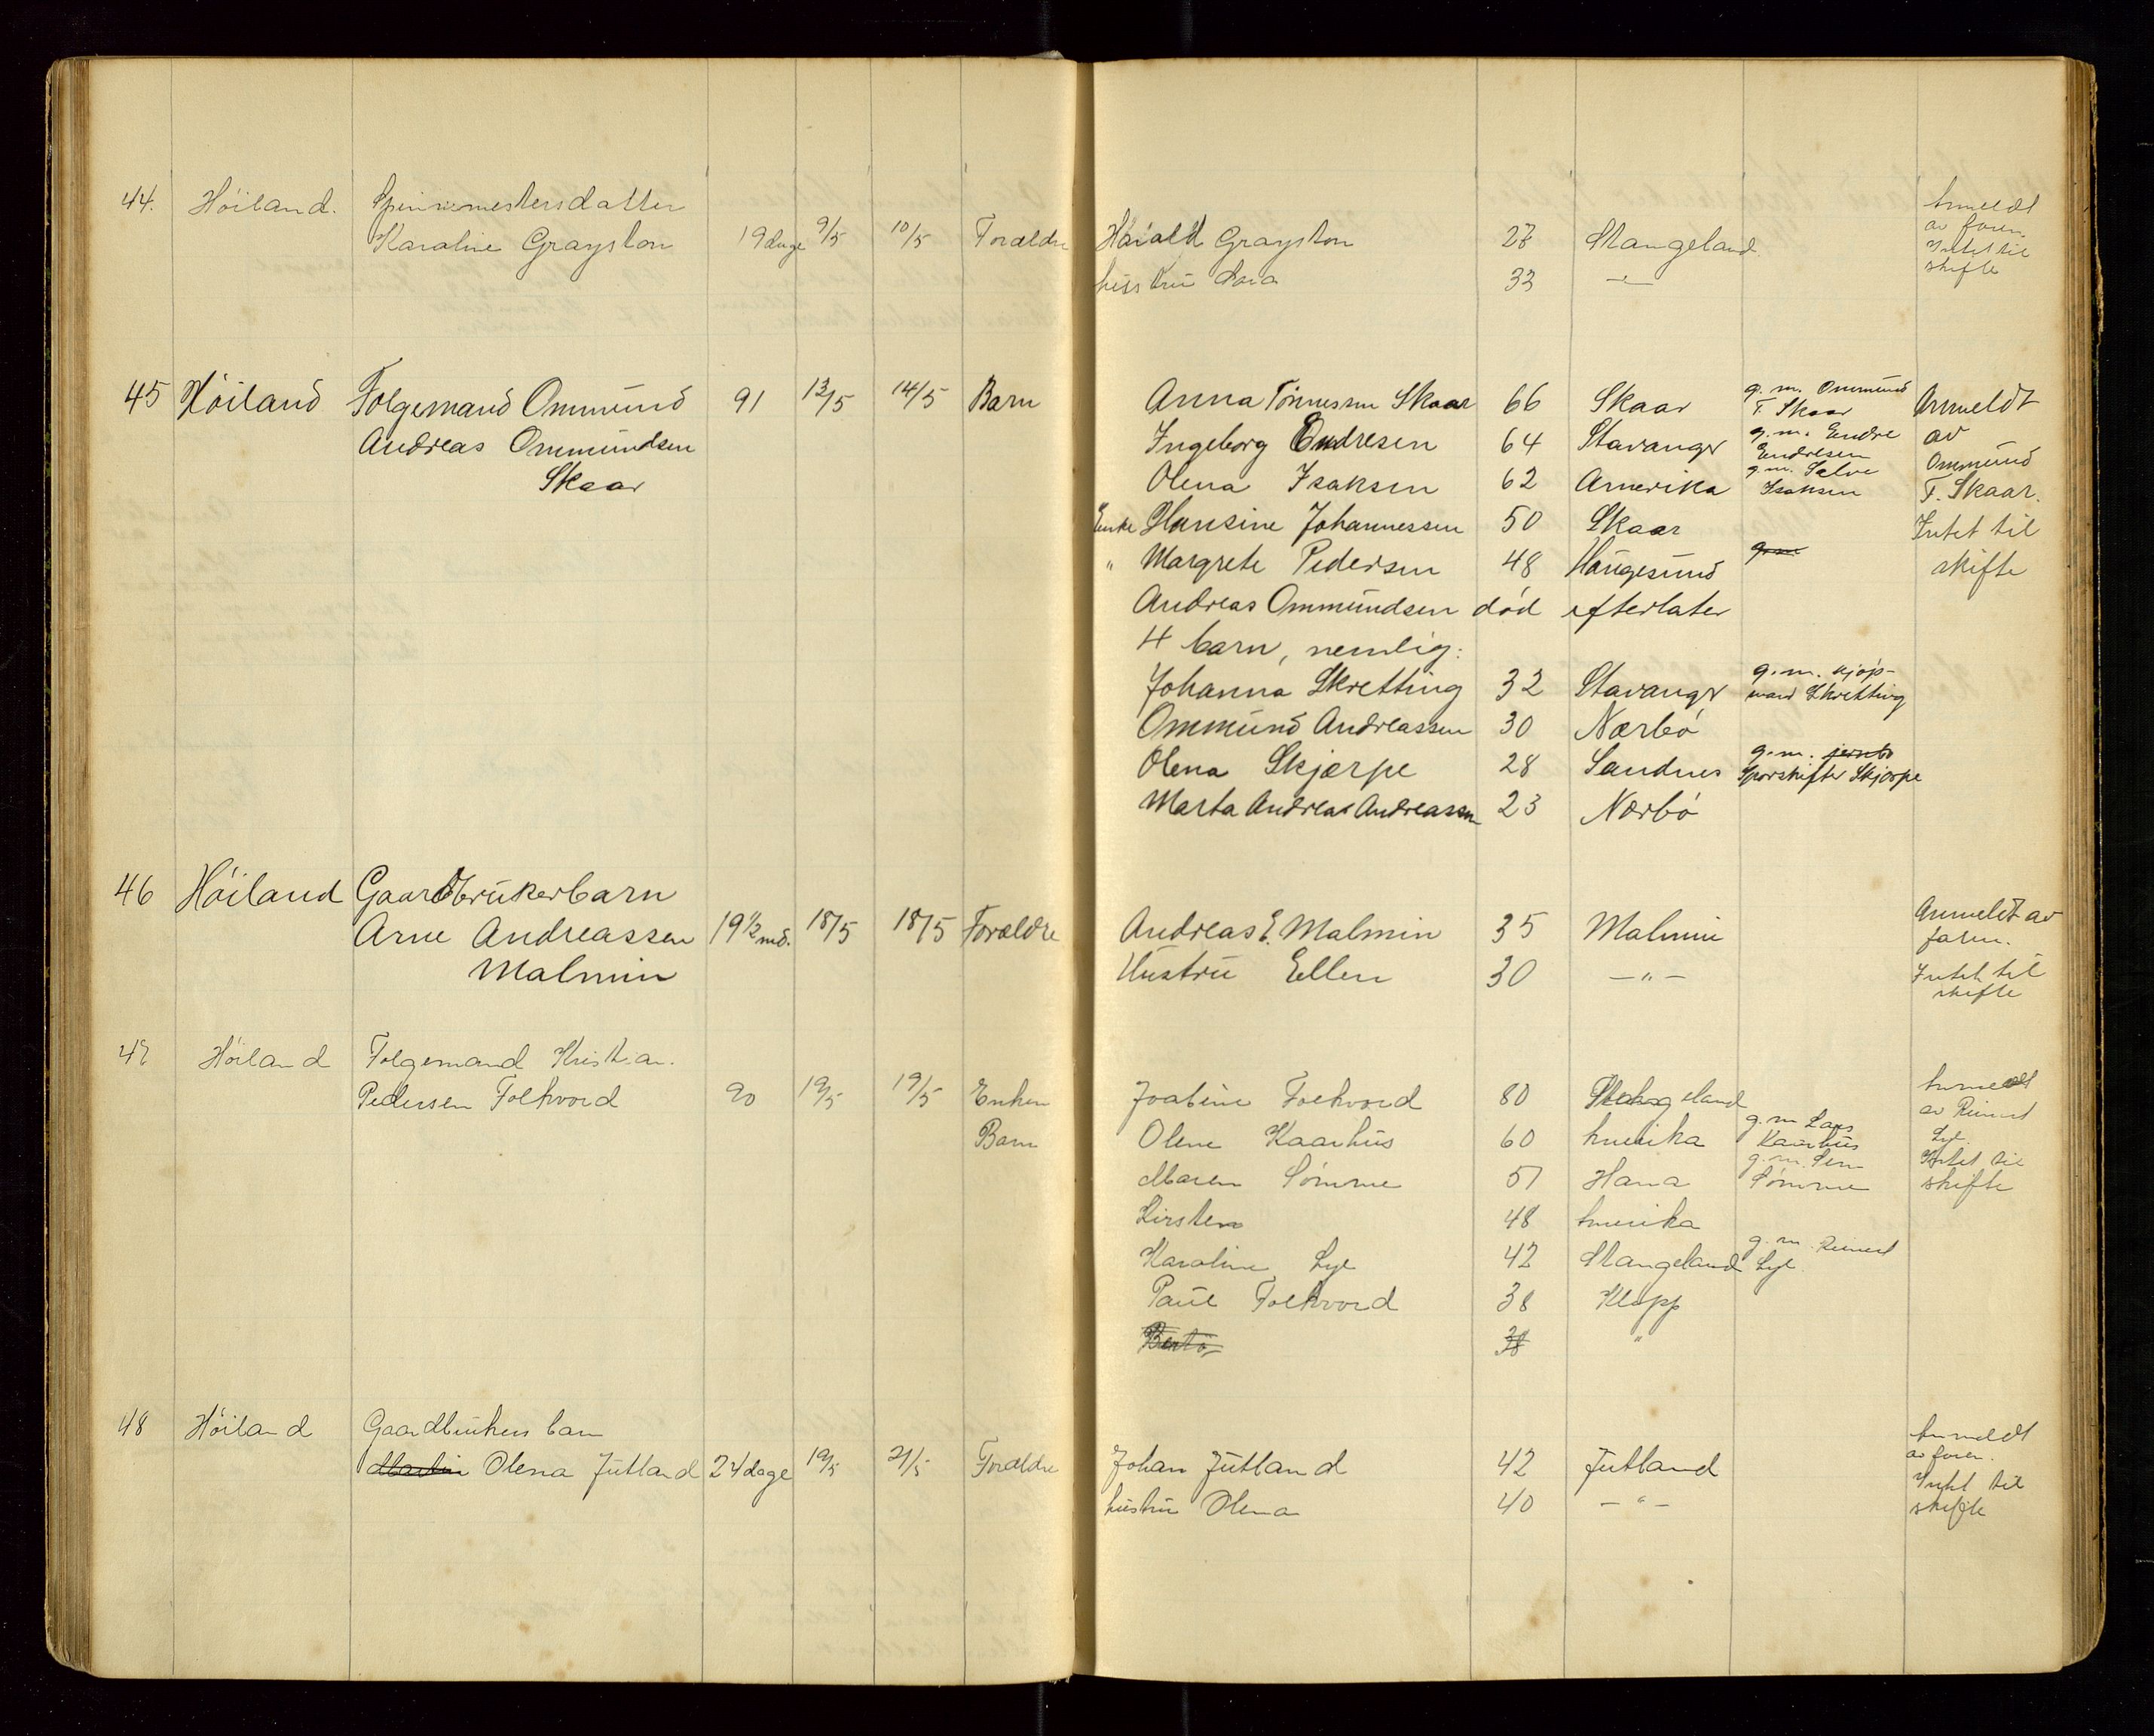 44. Höiland. Spinnemestersdatter
Karoline Grayston 19 dage 9/5 10/5 Forældre Harald Grayston 27 Stangeland
hustru Sara 33 —"—
Anmeldt
av faren.
Intet til
skifte
45 Höiland Folgemand Ommund 91 12/5 14/5 Barn Anna Tönnesen Skaar 66 Skaar g.m. Ommund T. Skaar Anmeldt
Andreas Ommundsen Ingeborg Endresen 64 Stavanger g.m. Endre Endresen av
Skaar Olena Isaksen 62 Amerika g.m. Salve Isaksen Ommund T. Skaar.
Enke Hansine Johannessen 50 Skaar Intet til
" Margrete Pedersen 48 Haugesund g.m. skifte
Andreas Ommundsen död efterlater
4 barn, nemlig:
Johanna Skretting 32 Stavanger g.m. kjöpmand Skretting
Ommund Andreassen 30 Nærbö
Olena Skjærpe 28 Sandnes g.m. jernb Sporskifter Skjærpe
Marta Andrea Andreassen 23 Nærbö
46 Höiland Gaardbrukerbarn
Arne Andreassen 19 1/2 md. 18/5 18/5 Forældre Andreas E. Malmin 35 Malmin Anmeldt av faren.
Malmin Hustru Ellen 30 —"— Intet til skifte
47 Höiland Folgemand Kristian
Pedersen Folkvord 90 19/5 19/5 Enken Joabine Folkvord 80 Stangeland Anmeldt av Reinert
Barn Olene Kaarhus 60 Amerika g.m. Lars Kaarhus Lye.
Maren Sömme 51 Hana g.m. Sömme Intet til skifte
Kirsten 48 Amerika
Karoline Lye 42 Stangeland g.m. Reinert Lye
Paul Folkvord 38 Klepp
38 "
48 Höiland Gaardbrukers barn
Olena Jutland 24 dage 19/5 21/5 Forældre Johan Jutland 42 Jutland Anmeldt av faren.
hustru Olena 40 —"— Intet til skifte